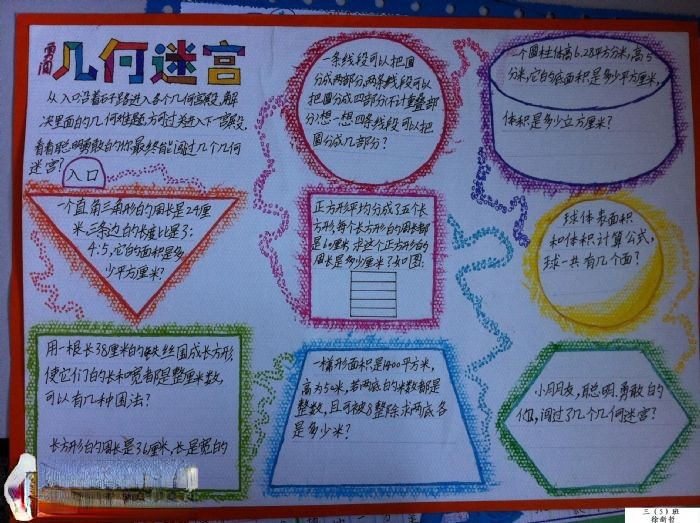 勇闯
几何迷宫
从入口沿着石子路进入各个几何宫殿,解
决里面的几何难题,方可过关进入下一宫殿,
看看聪明勇敢的你最终能闯过几个几何
迷宫?
入口
一个直角三角形的周长是24厘
米,三条边的长度比是3:
4:5,它的面积是多
少平方厘米?
用一根长38厘米的铁丝围成长方形
使它们的长和宽都是整厘米数,
可以有几种围法?
长方形的周长是36厘米,长是宽的
一条线段可以把圆
分成两部分,两条线段可以
把圆分成四部分(不计重叠部
分)想一想四条线段可以把
圆分成几部分?
正方形平均分成了五个长
方形,每个长方形的周长都
是60厘米,求这个正方形的
周长是多少厘米?如图:
一梯形面积是1400平方米,
高为50米,若两底的米数都是
整数,且可被8整除求两底各
是多少米?
一个圆柱体高6.28平方分米,高5
分米,它的底面积是多少平方厘米,
体积是多少立方厘米?
球体表面积
和体积计算公式,
球一共有几个面?
小朋友,聪明、勇敢的
你,闯过了几个几何迷宫?
三(5)班